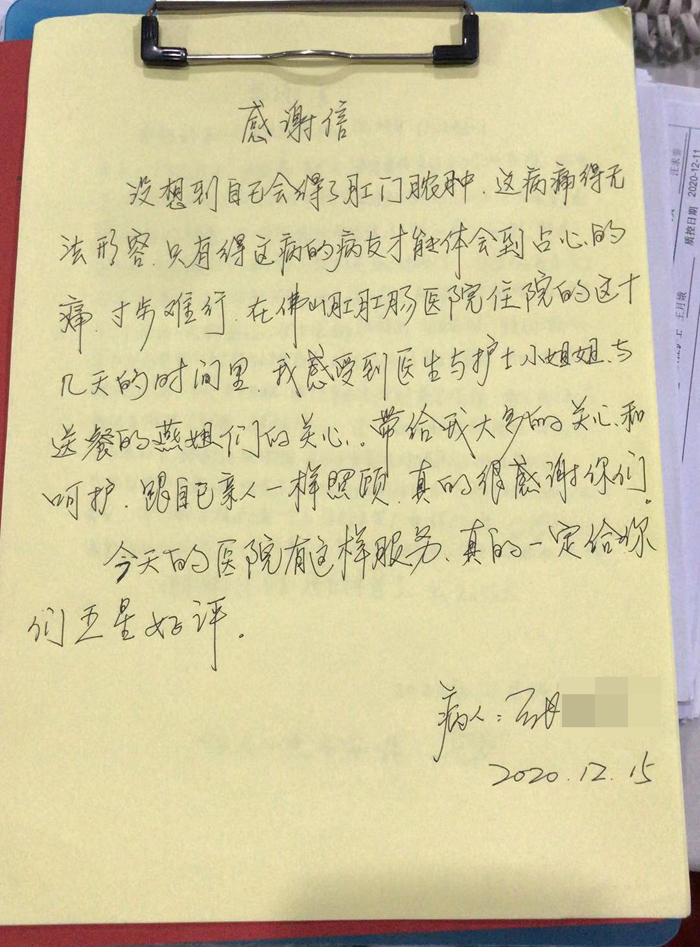 感谢信
没想到自己会得了肛门脓肿.这病痛得无
法形容.只有得这病的病友才能体会到占心的
痛.寸步难行.在佛山肛肛肠医院住院的这十
几天的时间里.我感受到医生与护士小姐姐.与
送餐的燕姐们的关心..带给我大多的关心和
呵护.跟自己亲人一样照顾.真的很感谢你们.
今天的医院有这样服务.真的一定给你
们五星好评.
病人:
2020.12.15
汪求寥
质控日期 2020-12-11
王月娥